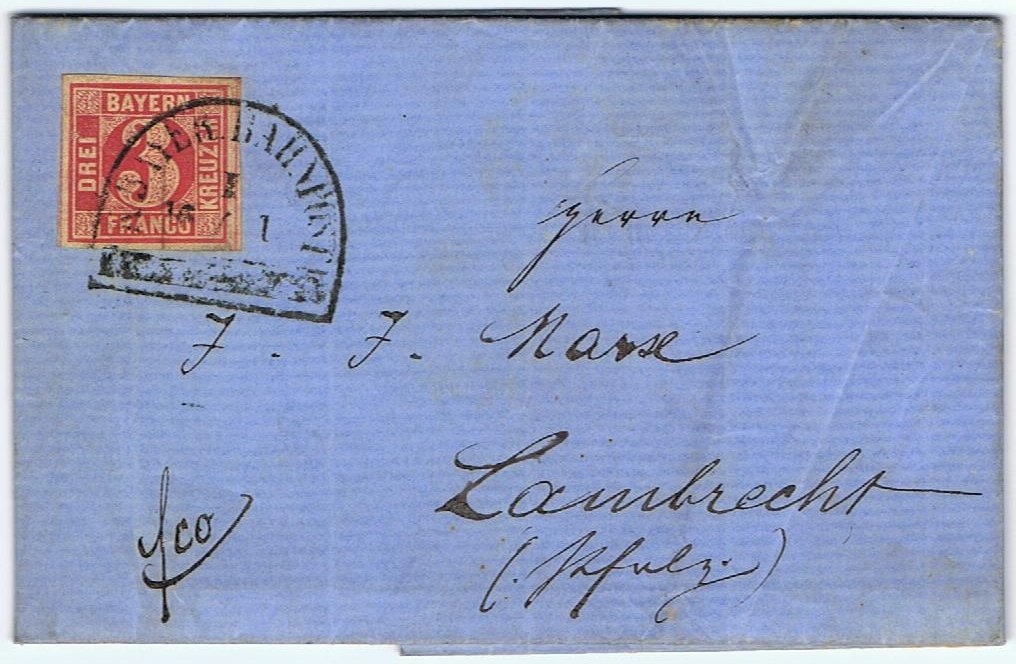 BAYERN
DREI
3
KREUZER
FRANCO
K. BAYER. BAHNPOST
I
16 / 1
Herrn
J. J. Marx
Lambrecht
(: Pfalz. )
fco